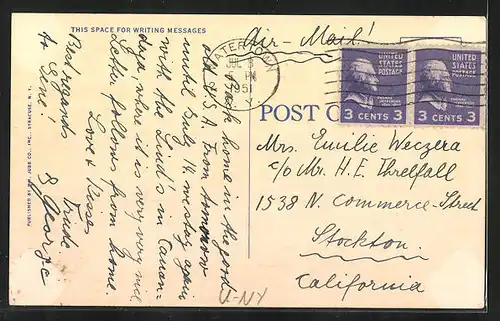 THIS SPACE FOR WRITING MESSAGES
Back home in the good
old U.S.A. From tomorrow
until July 14 we stay again
with the Lind's in Canan-
dega, where it is very very nice
Letter follows from home.
Love + Kisses
Trude
& George
Best regards
to Elve!
PUBLISHED BY WM. JUBB CO., INC., SYRACUSE, N. Y.
WATERTOWN
JUL 8
PM
1951
N. Y.
Air-Mail!
UNITED
STATES
POSTAGE
3 CENTS 3
UNITED
STATES
POSTAGE
3 CENTS 3
POST C
Mrs. Emilie Weczera
c/o Mr. H. E. Threlfall
1538 N. Commerce-Street
Stockton
California
U-NY